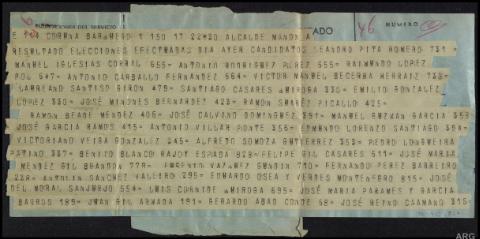 INDICACIONES DEL SERVICIO
ADO
46
NUMERO
E CORUNA BARQUERO 1 150 17 22*30 ALCALDE MANON A
RESULTADO ELECCIONES EFECTUADAS DIA AYER CANDIDATOS LEANDRO PITA ROMERO 731
MANUEL IGLESIAS CORRAL 655= ANTONIO RODRIGUEZ PEREZ 655= RAIMUNDO LOPEZ
POL 647= ANTONIO CARBALLO FERNANDEZ 564= VICTOR MANUEL BECERRA HERRAIZ
LAUREANO SANTISO GIRON 479= SANTIAGO CASARES QUIROGA 330= EMILIO GONZALEZ
LOPEZ 330= JOSE MINONES BERNARDEZ 423= RAMON SUAREZ PICALLO 425=
RAMON BEADE MENDEZ 406= JOSE CALVINO DOMINGUEZ 391= MANUEL GUZMAN GARCIA 353
JOSE GARCIA RAMOS 415= ANTONIO VILLAR PONTE 356= EDMUNDO LORENZO SANTIAGO
VICTORIANO VEIGA GONZALEZ 345= ALFREDO SOMOZA GUTIERREZ 353= PEDRO LONGUEIRA
PATINO 337= BENITO BLANCO RAJOY ESPADA 828= FELIPE GIL CASARES 511= JOSE MARIA
MENDEZ GIL BRANDON 778= EUGENIO VAZQUEZ GUNDIN 710= FERNANDO PEREZ BARREIRO
228= ANTOLIN SANCHEZ VALEIRO 295= EDUARDO OSEA Y VERDES MONTENEGRO 815= JOSE
DEL MORAL SANJURJO 554= LUIS CORNIDE QUIROGA 695= JOSE MARIA PARAMES Y GARCIA
BARROS 189= JUAN GIL ARMADA 181= GERARDO ABAD CONDE 68= JOSE REINO CAAMANO 815=
ARG